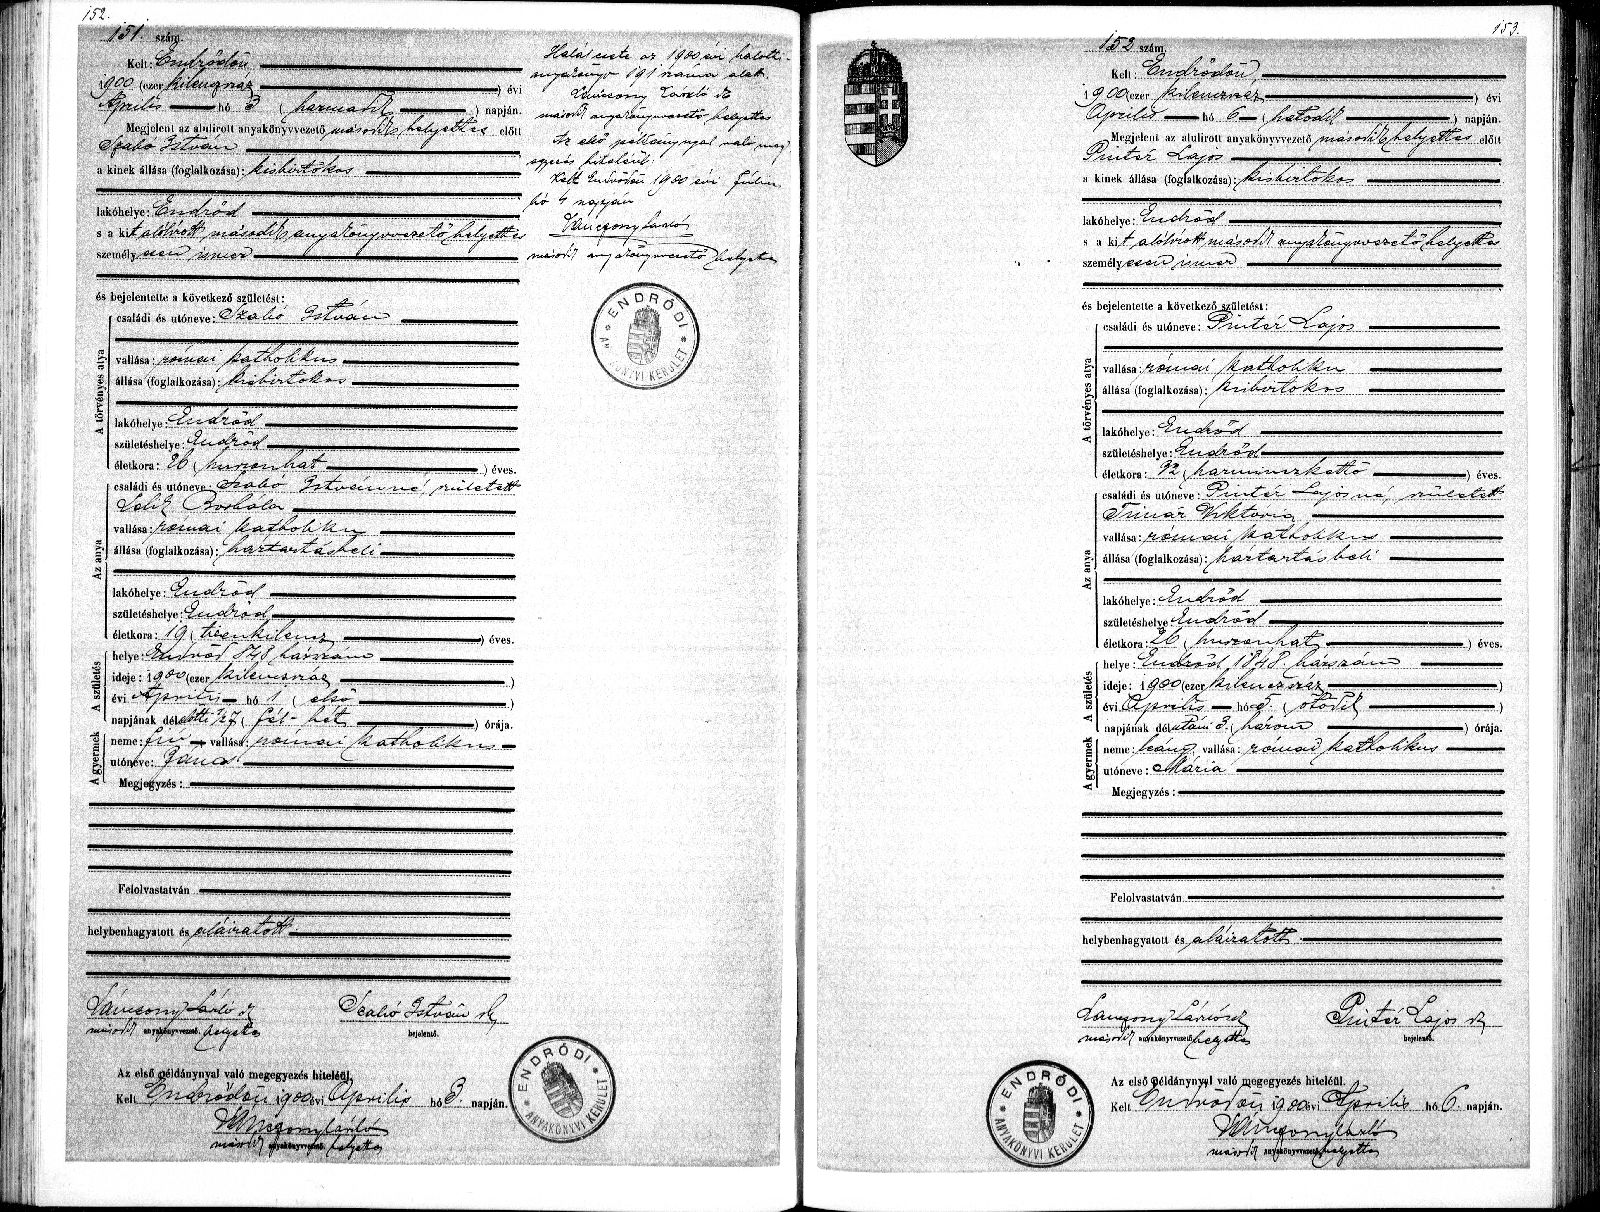 152.
151. szám.
Kelt: Endrődön
1900 (ezer kilenczszáz ) évi
Április hó 3 (harmadik ) napján.
Megjelent az alulirott anyakönyvvezető második helyettes előtt
Szabó István
a kinek állása (foglalkozása): kisbirtokos
lakóhelye: Endrőd
s a kit alólirott második anyakönyvvezető helyettes
személyesen ismer
és bejelentette a következő születést:
A törvényes atya
családi és utóneve: Szabó István
vallása: római katholikus
állása (foglalkozása): kisbirtokos
lakóhelye: Endrőd
születéshelye: Endrőd
életkora: 26 (huszonhat ) éves.
Az anya
családi és utóneve: Szabó Istvánné, született
Borbála
vallása: római katholikus
állása (foglalkozása): háztartásbeli
lakóhelye: Endrőd
születéshelye: Endrőd
életkora: 19 (tizenkilencz ) éves.
A születés
helye: Endrőd 878 házszám
ideje: 1900 (ezer kilenczszáz )
évi Április hó 1 (első )
napjának délelőtti 1/2 7 (fél-hét ) órája.
A gyermek
neme: fiú vallása: római katholikus
utóneve: János
Megjegyzés:
Felolvastatván
helybenhagyatott és aláiratott.
Váncsony László sk
második anyakönyvvezető helyettes
Szabó István sk
bejelentő.
Az első példánynyal való megegyezés hiteléül.
Kelt Endrődön 1900 évi Április hó 3. napján.
Váncsony László
második anyakönyvvezető helyettes
ENDRŐDI * ANYAKÖNYVI KERÜLET *
Halál esete az 1900 évi halotti
anyakönyv 191 száma alatt.
Váncsony László sk
második anyakönyvvezető helyettes
Az első példánynyal való meg
egyezés hiteléül.
Kelt Endrődön 1900 évi Julius
hó 4 napján
Váncsony László
második anyakönyvvezető helyettes
ENDRŐDI * ANYAKÖNYVI KERÜLET *
153.
152 szám.
Kelt: Endrődön
1900 (ezer kilenczszáz ) évi
Április hó 6 (hatodik ) napján.
Megjelent az alulirott anyakönyvvezető második helyettes előtt
Pintér Lajos
a kinek állása (foglalkozása): kisbirtokos
lakóhelye: Endrőd
s a kit alólirott második anyakönyvvezető helyettes
személyesen ismer
és bejelentette a következő születést:
A törvényes atya
családi és utóneve: Pintér Lajos
vallása: római katholikus
állása (foglalkozása): kisbirtokos
lakóhelye: Endrőd
születéshelye: Endrőd
életkora: 32 (harminczkettő ) éves.
Az anya
családi és utóneve: Pintér Lajosné, született
Timár Viktória
vallása: római katholikus
állása (foglalkozása): háztartásbeli
lakóhelye: Endrőd
születéshelye Endrőd
életkora: 26 (huszonhat ) éves.
A születés
helye: Endrőd, 1878. házszám
ideje: 1900 (ezer kilenczszáz )
évi Április hó (ötödik )
napjának délutáni 3. (három ) órája.
A gyermek
neme: leány, vallása: római katholikus
utóneve: Mária
Megjegyzés:
Felolvastatván
helybenhagyatott és aláiratott.
Váncsony László sk
második anyakönyvvezető helyettes
Pintér Lajos sk
bejelentő.
Az első példánynyal való megegyezés hiteléül.
Kelt Endrődön 1900 évi Április hó 6. napján.
Váncsony László
második anyakönyvvezető helyettes
ENDRŐDI * ANYAKÖNYVI KERÜLET *